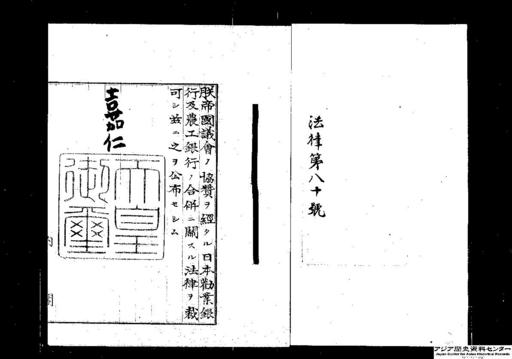 法律第八十號
朕帝國議會ノ協贊ヲ經タル日本勸業銀
行及農工銀行ノ合併ニ關スル法律ヲ裁
可シ玆ニ之ヲ公布セシム
嘉仁
天皇
御璽
内閣
アジア歴史資料センター
Japan Center for Asian Historical Records